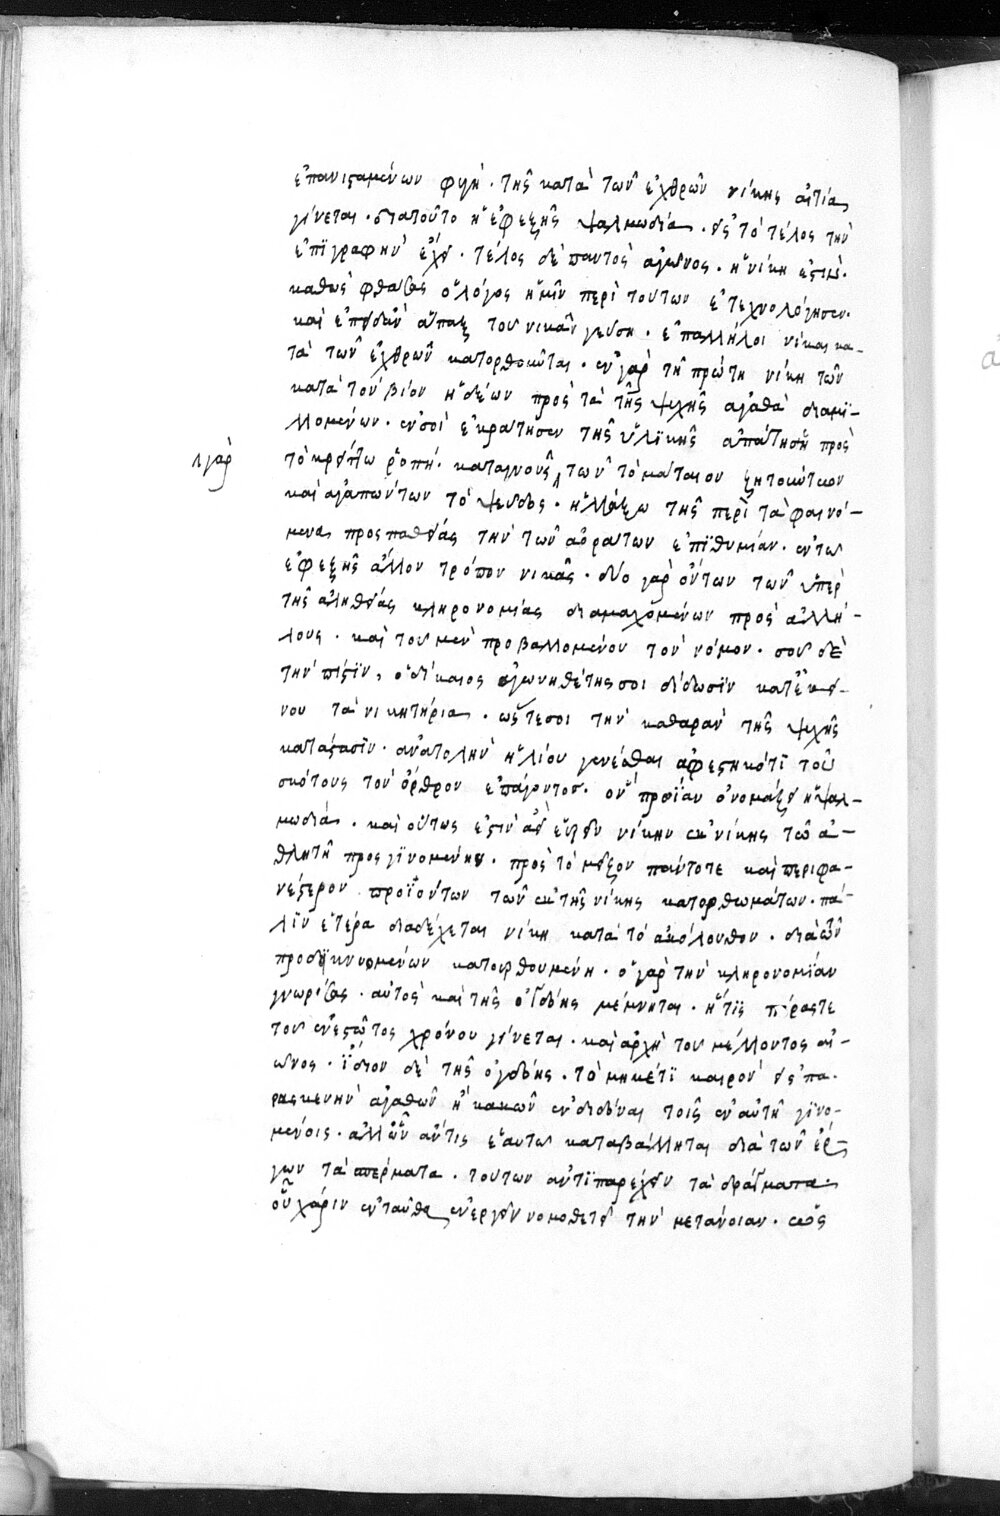 ἐπανισταμένων φυγὴ· τῆς κατὰ τῶν ἐχθρῶν νίκης αἰτία
γίνεται· διατοῦτο ἡ ἐφεξῆς ψαλμωδία· εἰς τὸ τέλος τὴν
ἐπϊγραφὴν ἔχει· τέλος δὲ παντὸς ἀγῶνος· ἡ νίκη ἐστὶν·
καθὼς φθάσας ὁ λόγος ἡμῖν περὶ τούτων ἐτεχνολόγησεν·
καὶ ἐπειδὰν ἅπαξ τοῦ νικᾶν γεύση· ἐπαλλήλοι νίκαι κα-
τὰ τῶν ἐχθρῶν κατορθοῦται· ἐν γὰρ τῆ πρώτη νίκη τῶν
κατὰ τὸν βίον ἡδέων πρὸς τὰ τῆς ψυχῆς ἀγαθὰ διαμϊ-
λλομένων· ἐν σοὶ ἐκράτησεν τῆς ὑλϊκῆς ἀπάτης ἡ πρὸς
λ γὰρ
τὸ κρείττω ῥοπή· καταγνοὺς τῶν τὸ μάταιον ζητούντων
καὶ ἀγαπώντων τὸ ψεῦδος· ἠλλάξω τῆς περὶ τὰ φαινό-
μενα προσπαθείας τὴν τῶν ἀοράτων ἐπϊθυμίαν· ἐν τῶ
ἐφεξῆς ἄλλον τρόπον νικᾶς· δύο γὰρ ὄντων τῶν ὑπὲρ
τῆς ἀληθείας κληρονομίας διαμαχομένων πρὸς ἀλλή-
λους· καὶ τοῦ μὲν προβαλλομένου τὸν νόμον· σοῦ δὲ
τὴν πίστϊν, ὁ δίκαιος ἀγωνηθέτης σοι δίδωσϊν κατ ἐκεί-
νου τὰ νικητήρια· ὥστε σοι τὴν καθαρὰν τῆς ψυχῆς
κατάστασϊν· ἀνατολὴν ἡλίου γενέσθαι ἀφεστηκότϊ τοῦ
σκότους τὸν ὄρθρον ἐπάγοντος· ὃν πρωΐαν ὀνομάζει ἡ ψαλ-
μωδία· καὶ οὕτως ἐστὶν ἀεὶ εὑρεῖν νίκην ἐκ νίκης τῶ ἀ-
θλητῆ προσγϊνομένην· πρὸς τὸ μεῖζον πάντοτε καὶ περιφα-
νέστερον προϊόντων τῶν ἐκ τῆς νίκης κατορθωμάτων· πά-
λϊν ἑτέρα διαδέχεται νίκη κατὰ τὸ ἀκόλουθον· διὰ τῶν
προδεικνυομένων κατορθουμένη· ὁ γὰρ τὴν κληρονομίαν
γνωρίσας· αὐτὸς καὶ τῆς ὀγδόης μέμνηται· ἥτϊς πέρας τε
τοῦ ἐνεστῶτος χρόνου γίνεται· καὶ ἀρχὴ τοῦ μέλλοντος αἰ-
ῶνος· ἴδιον δὲ τῆς ὀγδόης· τὸ μηκέτϊ καιρὸν εἰς πα-
ρασκευὴν ἀγαθῶν ἢ κακῶν ἐνδιδόναι τοῖς ἐν αὐτῆ γϊνο-
μένοις· ἀλλ ὧν ἄν τις ἑαυτῶ καταβάλληται διὰ τῶν ἔρ-
γων τὰ σπέρματα· τούτων ἀντϊπαρέχειν τὰ δράγματα·
οὗ χάριν ἐνταῦθα ἐνεργεῖν νομοθετεῖ τὴν μετάνοιαν· ὡς